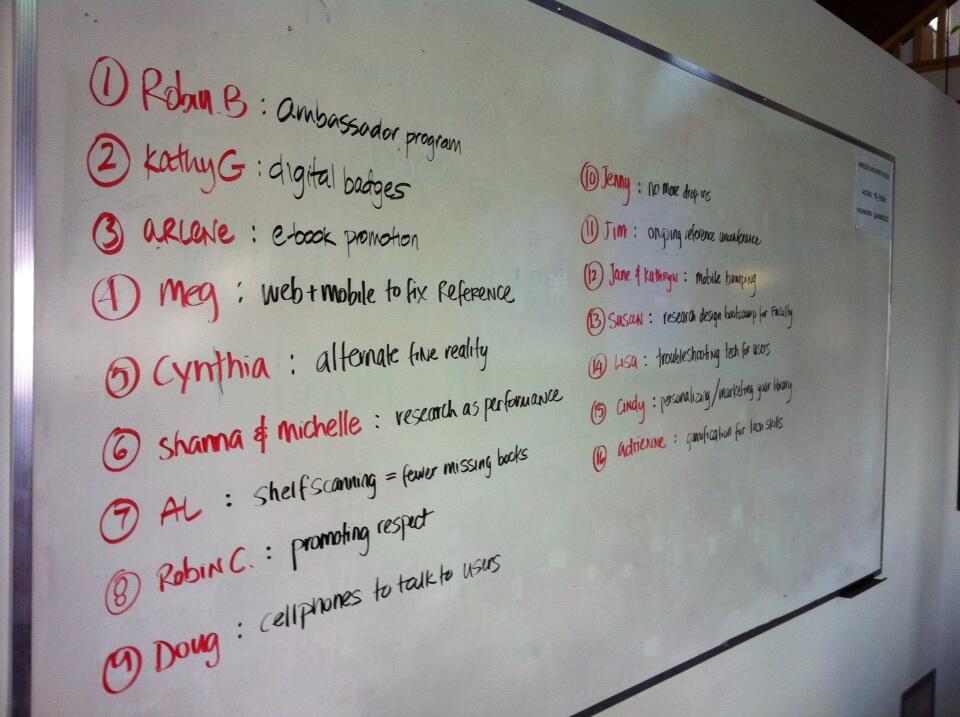 ① Robin B : ambassador program
② Kathy G : digital badges
③ ARLENE : e-book promotion
④ Meg : web + mobile to fix Reference
⑤ Cynthia : alternate fine reality
⑥ Shanna & Michelle : research as performance
⑦ AL : shelfscanning = fewer missing books
⑧ Robin C. : promoting respect
⑨ Doug : cellphones to talk to users
⑩ Jenny : no more drop-ins
⑪ Jim : ongoing reference unconference
⑫ Jane & Kathryn : mobile bumping
⑬ Susan : research design bootcamp for Faculty
⑭ Lisa : troubleshooting tech for users
⑮ Cindy : personalizing/marketing your library
⑯ adrienne : gamification for tech skills